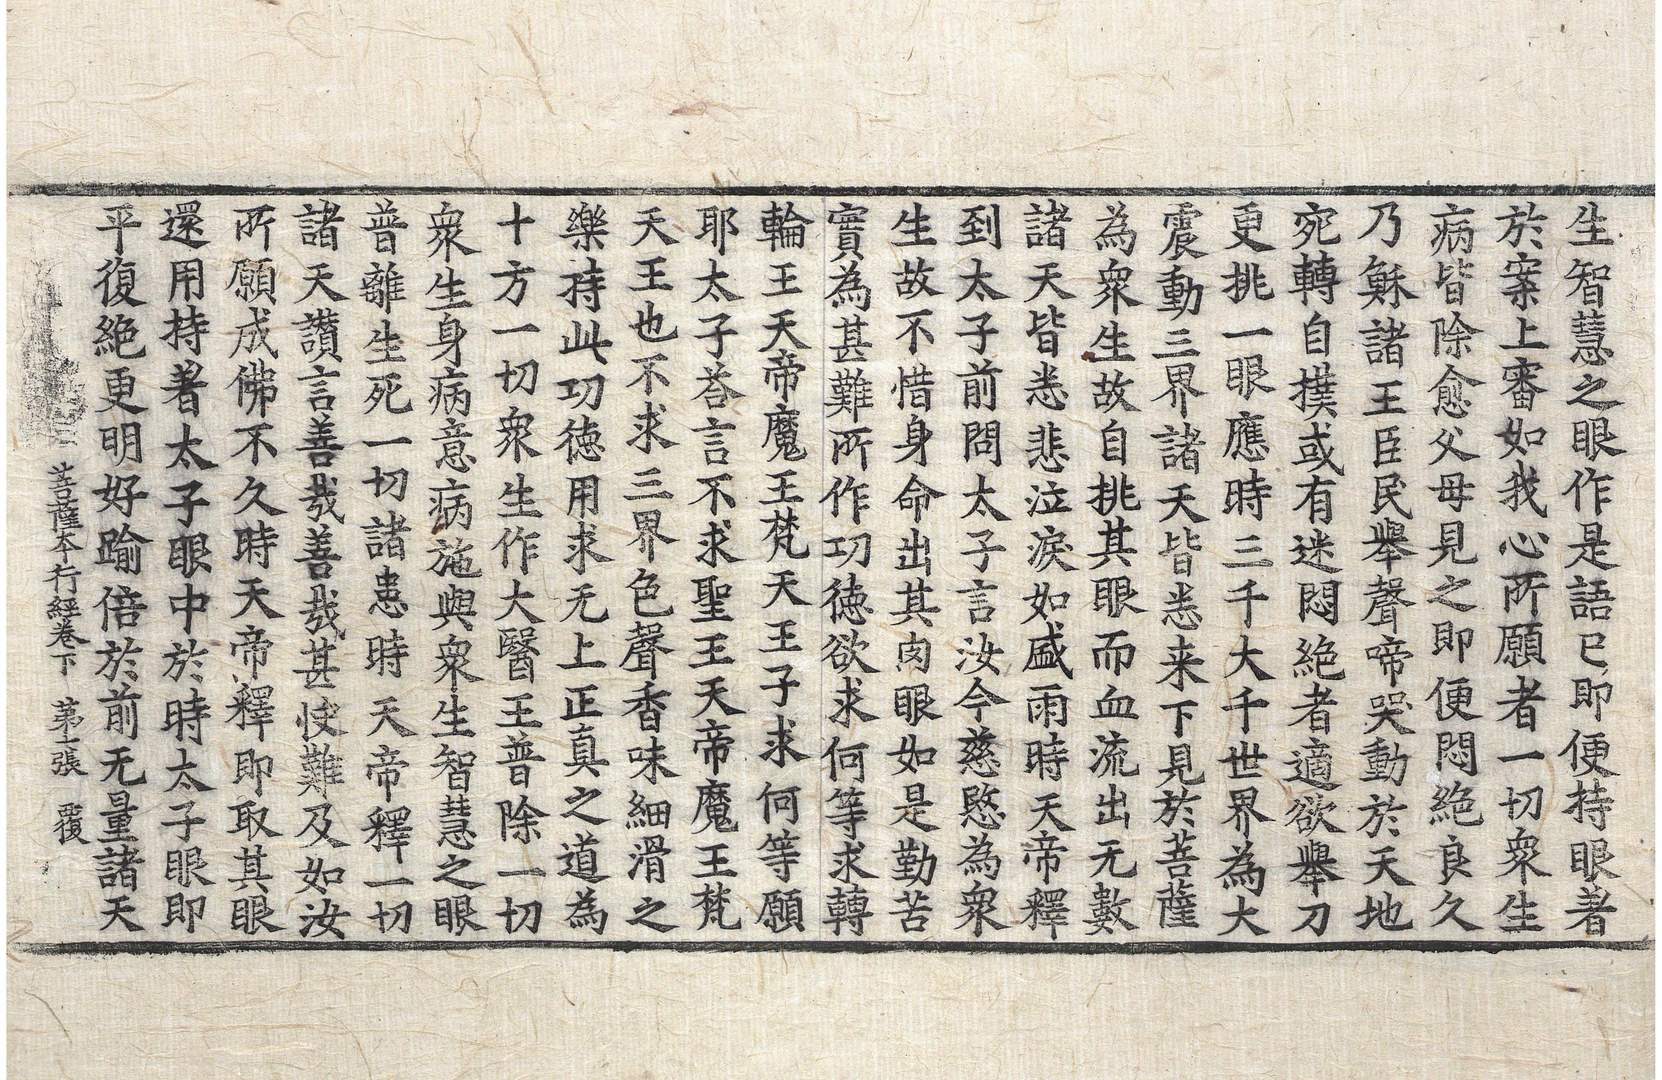 生智慧之眼作是語已即便持眼著
於案上審如我心所願者一切衆生
病皆除愈父母見之即便悶絶良久
乃穌諸王臣民舉聲啼哭動於天地
宛轉自撲或有迷悶絶者適欲舉刀
更挑一眼應時三千大千世界為大
震動三界諸天皆悉来下見於菩薩
為衆生故自挑其眼而血流出无數
諸天皆悉悲泣淚如盛雨時天帝釋
到太子前問太子言汝今慈愍為衆
生故不惜身命出其肉眼如是勤苦
實為甚難所作功徳欲求何等求轉
輪王天帝魔王梵天王子求何等願
耶太子荅言不求聖王天帝魔王梵
天王也不求三界色聲香味細滑之
樂持此功徳用求无上正真之道為
十方一切衆生作大醫王普除一切
衆生身病意病施與衆生智慧之眼
普離生死一切諸患時天帝釋一切
諸天讃言善哉善哉甚難及如汝
所願成佛不久時天帝釋即取其眼
還用持著太子眼中於時太子眼即
平復絶更明好踰倍於前无量諸天
菩薩本行經卷下 第張 覆